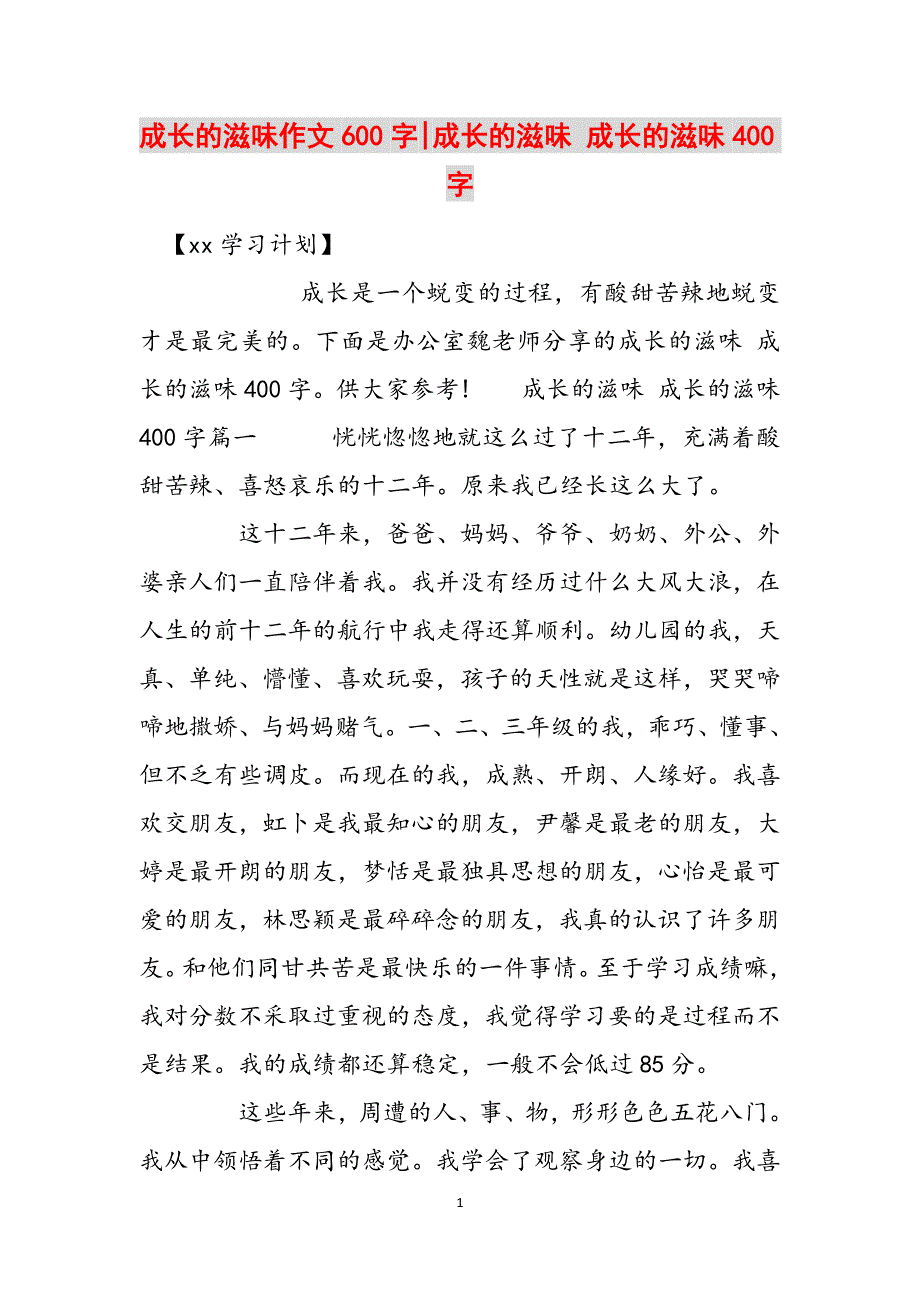 成长的滋味作文600字|成长的滋味 成长的滋味400
字
【xx学习计划】
成长是一个蜕变的过程，有酸甜苦辣地蜕变
才是最完美的。下面是办公室魏老师分享的成长的滋味 成
长的滋味400字。供大家参考！ 成长的滋味 成长的滋味
400字篇一 恍恍惚惚地就这么过了十二年，充满着酸
甜苦辣、喜怒哀乐的十二年。原来我已经长这么大了。
这十二年来，爸爸、妈妈、爷爷、奶奶、外公、外
婆亲人们一直陪伴着我。我并没有经历过什么大风大浪，在
人生的前十二年的航行中我走得还算顺利。幼儿园的我，天
真、单纯、懵懂、喜欢玩耍，孩子的天性就是这样，哭哭啼
啼地撒娇、与妈妈赌气。一、二、三年级的我，乖巧、懂事、
但不乏有些调皮。而现在的我，成熟、开朗、人缘好。我喜
欢交朋友，虹卜是我最知心的朋友，尹馨是最老的朋友，大
婷是最开朗的朋友，梦恬是最独具思想的朋友，心怡是最可
爱的朋友，林思颖是最碎碎念的朋友，我真的认识了许多朋
友。和他们同甘共苦是最快乐的一件事情。至于学习成绩嘛，
我对分数不采取过重视的态度，我觉得学习要的是过程而不
是结果。我的成绩都还算稳定，一般不会低过85分。
这些年来，周遭的人、事、物，形形色色五花八门。
我从中领悟着不同的感觉。我学会了观察身边的一切。我喜
1